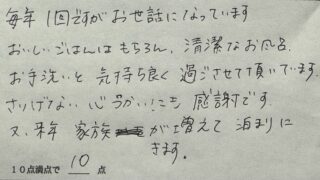 毎年1回ですがお世話になっています
おいしいごはんはもちろん、清潔なお風呂、
お手洗いと気持ち良く過ごさせて頂いています。
さりげない心づかいにも感謝です。
又、来年家族が増えて泊まりに
きます。
10点満点で 10 点